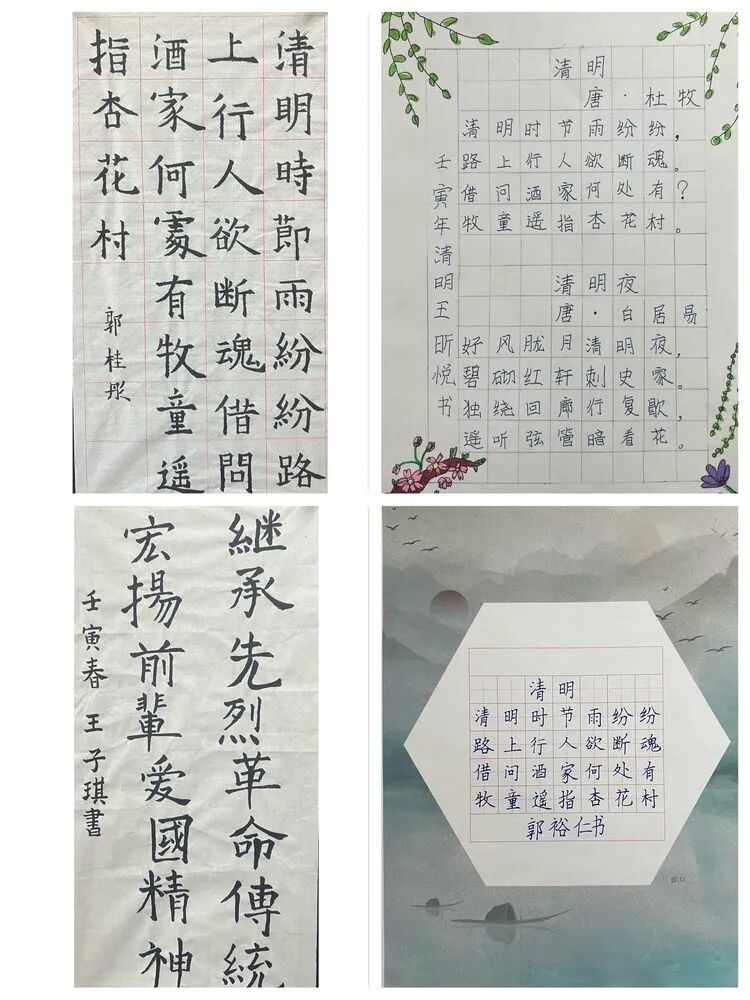 清明時節雨紛紛路
上行人欲断魂借問
酒家何處有牧童遥
指杏花村
郭桂彤
清明
唐·杜牧
清明时节雨纷纷，
路上行人欲断魂。
借问酒家何处有？
牧童遥指杏花村。
清明夜
唐·白居易
好风胧月清明夜，
碧砌红轩刺史家。
独绕回廊行复歇，
遥听弦管暗看花。
壬寅年清明王昕悦书
継承先烈革命傳統
宏揚前輩愛國精神
壬寅春 王子琪書
清明
清明时节雨纷纷
路上行人欲断魂
借问酒家何处有
牧童遥指杏花村
郭裕仁书